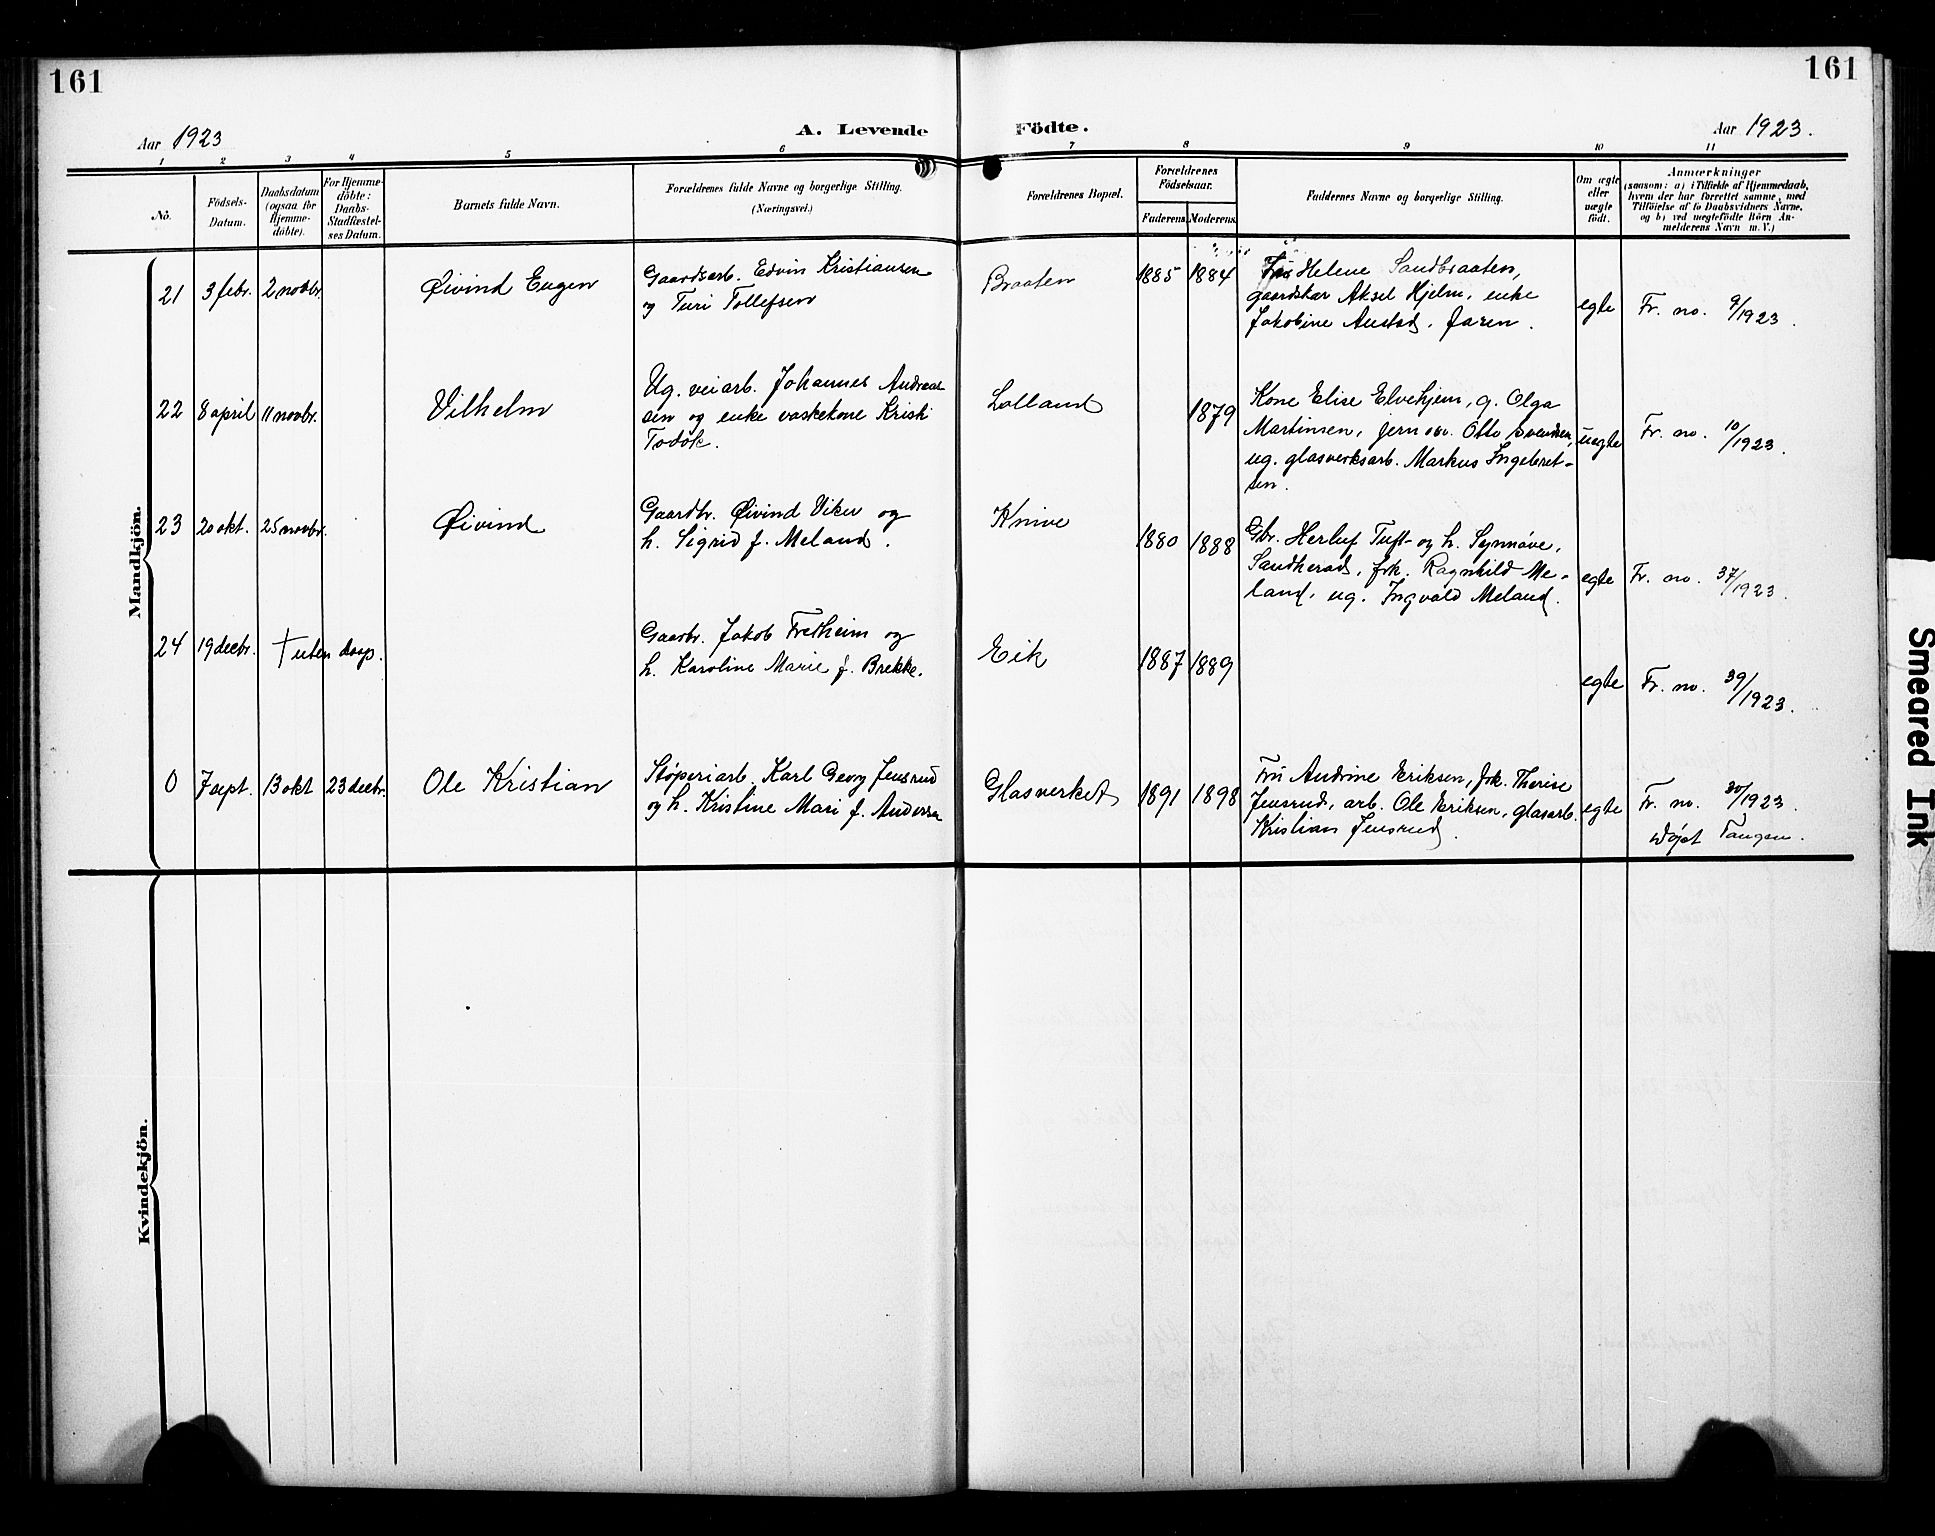 161
161
Aar 1923
A. Levende
Födte.
Aar 1923.
1 2 3 4 5 6 7 8 9 10 11
No.
Födsels-
Datum.
Daabsdatum
(ogsaa for
Hjemme-
döbte).
For Hjemme-
döbte:
Daabs-
Stadfæstel-
ses Datum.
Barnets fulde Navn.
Forældrenes fulde Navne og borgerlige Stilling.
(Næringsvei.)
Forældrenes Bopæl.
Forældrenes
Födselsaar.
Faderens.
Moderens.
Faddernes Navne og borgerlige Stilling.
Om ægte
eller
uægte
födt.
Anmærkninger
(saasom: a) i Tilfælde af Hjemmedaab,
hvem der har forrettet samme, med
Tilföielse af to Daabsvidners Navne,
og b) ved uægtefödte Börn An-
melderens Navn m. V.)
Mandkjön.
21 3 febr. 2 novbr. Øivind Eugen
Gaardsarb. Edvin Kristiansen
og Turi Tollefsen
Braaten 1885 1884
Fru Helene Sandbraaten,
gaardskar Aksel Hjelm, enke
Jakobine Austad, faren.
egte Fr. no. 9/1923.
22 8 april 11 novbr. Vilhelm
Ug. veiarb. Johannes Andreas
sen og enke vaskekone Kristi
Todok.
Lolland 1879
Kone Elise Elvehjem, g. Olga
Martinsen, jern Otto Svendsen,
ug. glasverksarb. Markus Ingebret-
sen.
uegte Fr. no. 10/1923.
23 20 okt. 25 novbr. Øivind
Gaardbr. Øivind Viker og
h. Sigrid f. Meland.
Knive 1880 1888
Gbr. Herluf Tuft og h. Synnøve,
Sandherad, frk. Ragnhild Me-
land, ug. Ingvald Meland.
egte Fr. no. 37/1923.
24 19 decbr. † uten daap.
Gaardbr. Jakob Fretheim og
h. Karoline Marie f. Brekke.
Eik 1887 1889
egte Fr. no. 39/1923.
0 7 sept. 13 okt 23 decbr. Ole Kristian
Støperiarb. Karl Georg Jensrud
og h. Kristine Mari f. Andersen
Glasverket 1891 1898
Fru Andrine Eriksen, frk. Therise
Jensrud, arb. Ole Eriksen, glasarb.
Kristian Jensrud.
egte Fr. no. 30/1923.
Døpt Tangen.
Kvindekjön.
Smeared Ink